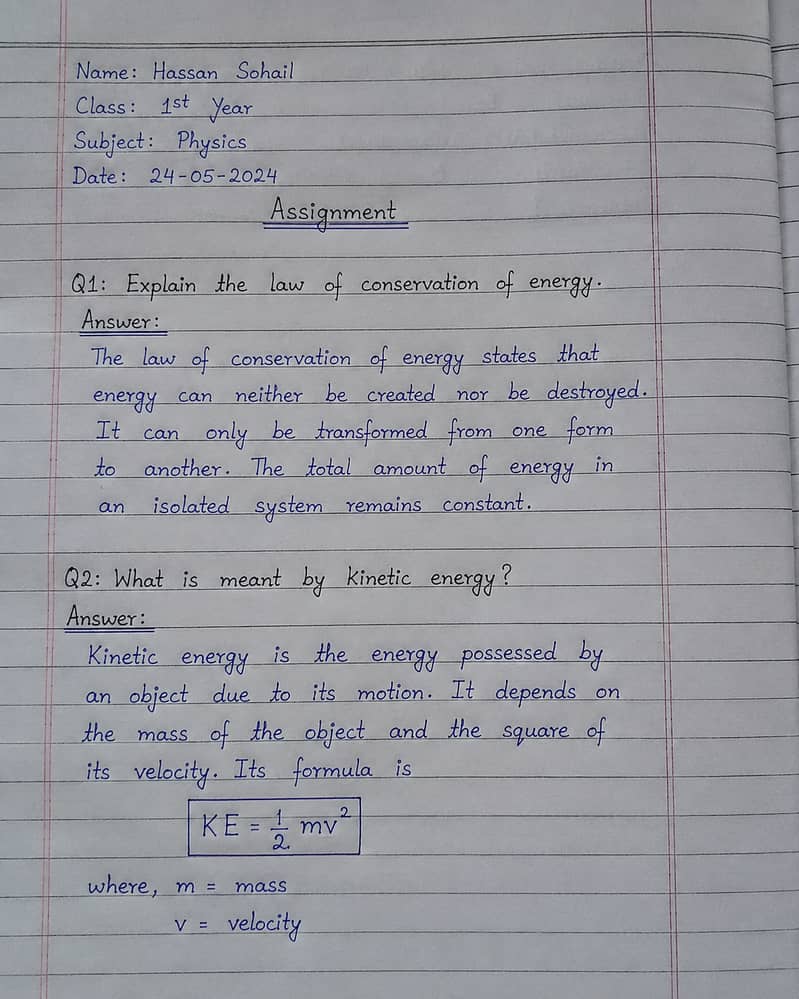 Name: Hassan Sohail
Class: 1st Year
Subject: Physics
Date: 24-05-2024
Assignment
Q1: Explain the law of conservation of energy.
Answer:
The law of conservation of energy states that
energy can neither be created nor be destroyed.
It can only be transformed from one form
to another. The total amount of energy in
an isolated system remains constant.
Q2: What is meant by kinetic energy?
Answer:
Kinetic energy is the energy possessed by
an object due to its motion. It depends on
the mass of the object and the square of
its velocity. Its formula is
KE = 1/2 mv²
where, m = mass
v = velocity